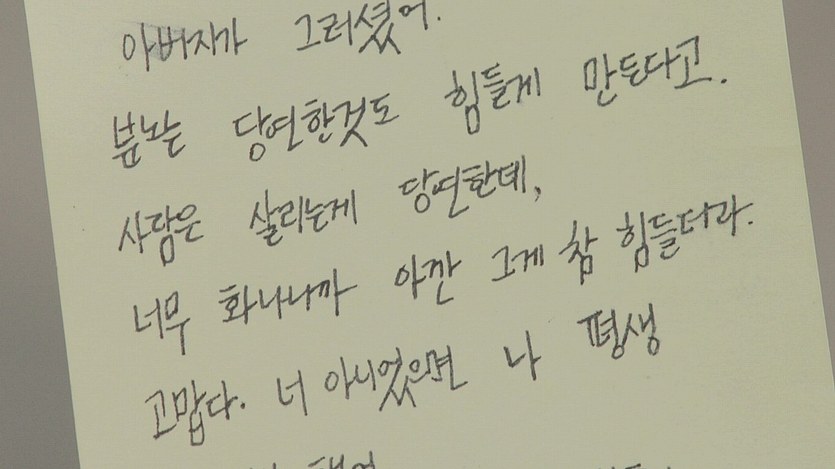 아버지가 그러셨어.
분노는 당연한것도 힘들게 만든다고.
사람은 살리는게 당연한데,
너무 화나니까 아깐 그게 참 힘들더라.
고맙다. 너 아니었으면 나 평생